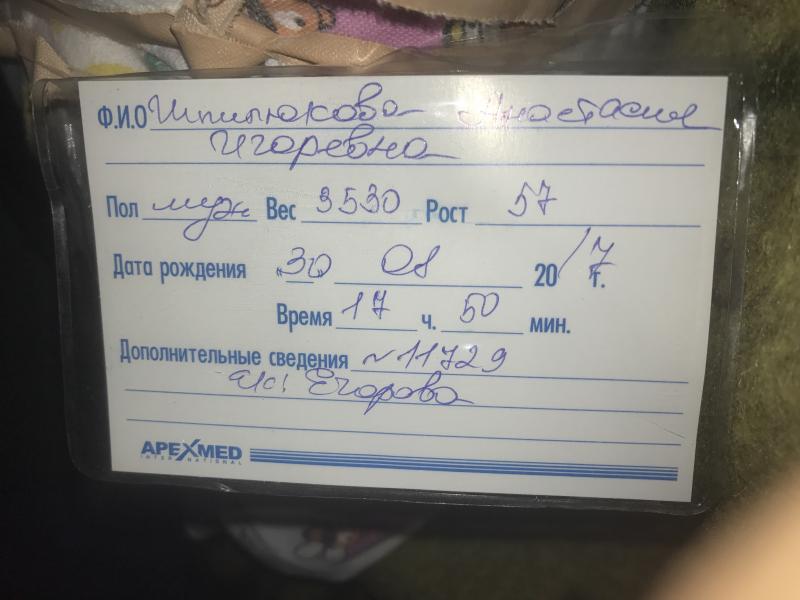 Ф.И.О Шпилюкова Анастасия
Игоревна
Пол муж Вес 3530 Рост 57
Дата рождения «30» 08 2017 г.
Время 17 ч. 50 мин.
Дополнительные сведения № 11729
Егорова
APEXMED
INTERNATIONAL